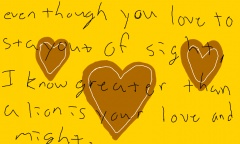 even though you love to
stay out of sight,
I know greater than
a lion is your love and
might.